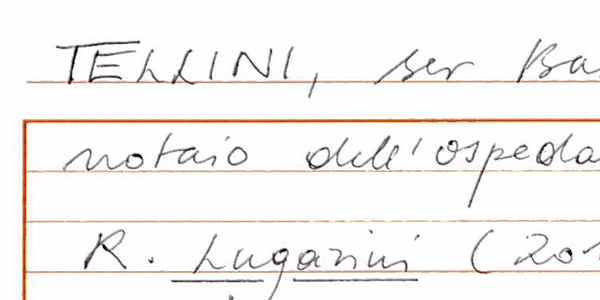 TELLINI, ser Ba
notaio dell'ospeda
R. Lugarini (201